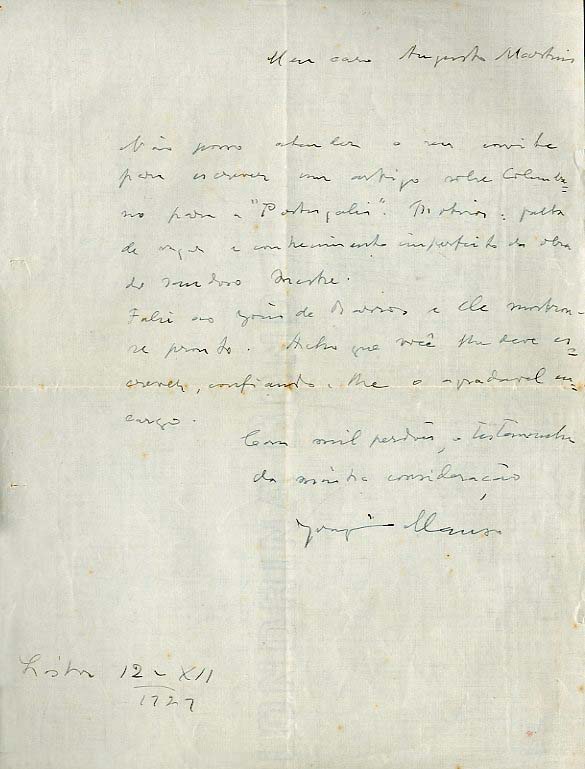 Meu caro Augusto Martins
Não posso atender o seu convite
para escrever um artigo sobre Columba-
no para a "Portugalia". Motivos: falta
de vagar e conhecimento imperfeito da obra
do saudoso Mestre.
Falei ao João de Barros e ele mostrou-
se pronto. Acho que você lhe deve es-
crever, confiando-lhe o agradavel en-
cargo.
Com mil perdões, o testemunho
da muita consideração
Lisboa 12-XII